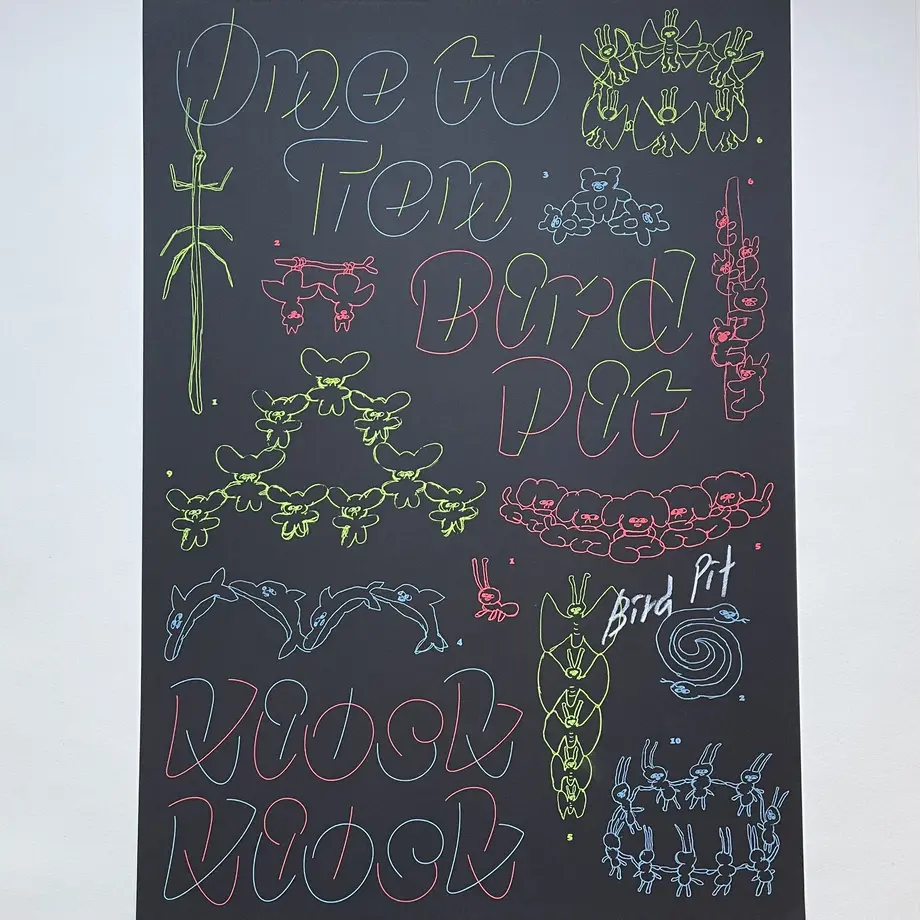 One to
6
Ten
3
6
2
Bird
Pit
1
9
5
1
Bird Pit
4
2
Kiosk
10
5
Kiosk